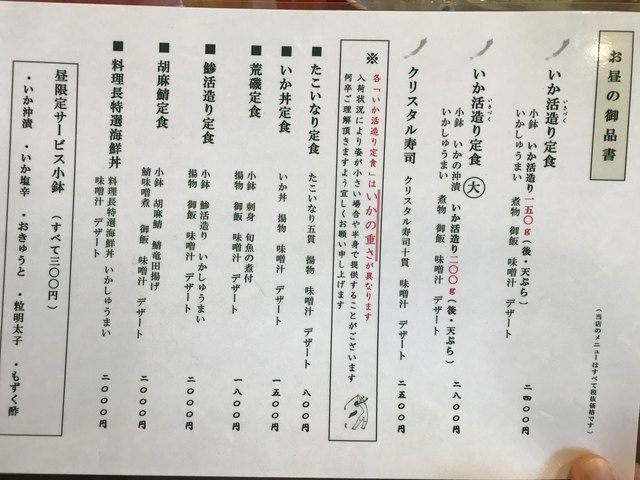 お昼の御品書
(当店のメニューはすべて税抜価格です)
いか活造り定食
いきづく
小鉢 いか活造り一五〇g(後・天ぷら)
いかしゅうまい 煮物 御飯 味噌汁 デザート
二四〇〇円
いか活造り定食 大
いきづく
小鉢 いかの沖漬 いか活造り二〇〇g(後・天ぷら)
いかしゅうまい 煮物 御飯 味噌汁 デザート
二八〇〇円
クリスタル寿司
クリスタル寿司十貫 味噌汁 デザート
二五〇〇円
※
各「いか活造り定食」はいかの重さが異なります
入荷状況により姿が小さい場合や半身で提供することがございます
何卒ご理解頂きますよう宜しくお願い申し上げます
■ たこいなり定食
たこいなり五貫 揚物 味噌汁 デザート
八〇〇円
■ いか丼定食
いか丼 揚物 味噌汁 デザート
一五〇〇円
■ 荒磯定食
小鉢 刺身 旬魚の煮付
揚物 御飯 味噌汁 デザート
一八〇〇円
■ 鯵活造り定食
小鉢 鯵活造り いかしゅうまい
揚物 御飯 味噌汁 デザート
二〇〇〇円
■ 胡麻鯖定食
小鉢 胡麻鯖 鯖竜田揚げ
鯖味噌煮 御飯 味噌汁 デザート
二〇〇〇円
■ 料理長特選海鮮丼
料理長特選海鮮丼 いかしゅうまい
味噌汁 デザート
二〇〇〇円
昼限定サービス小鉢 (すべて三〇〇円)
・いか沖漬 ・いか塩辛 ・おきゅうと ・粒明太子 ・もずく酢